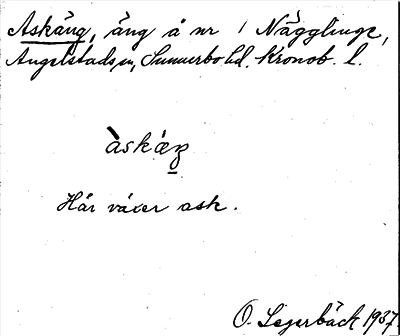 Askäng, äng å nr 1 Nägglinge,
Angelstads sn, Sunnerbo hd. Kronob. l.
àskæŋ
Här växer ask.
O. Segerbäck 1937.